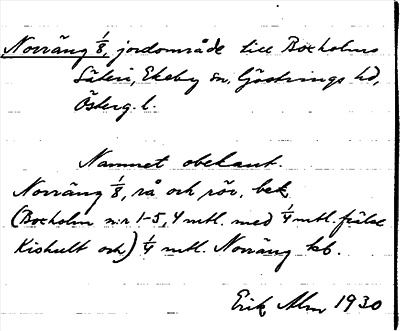 Norräng 1/8, jordområde till Bocholms
Säteri, Ekeby sn, Göstrings hd,
Österg. l.
Namnet obekant.
Norräng 1/8, rå och rör, bek.
(Bocholm n:r 1-5, 4 mtl. med 1/4 mtl. frälse
Kishult och) 1/4 mtl. Norräng kb.
Erik Alm 1930